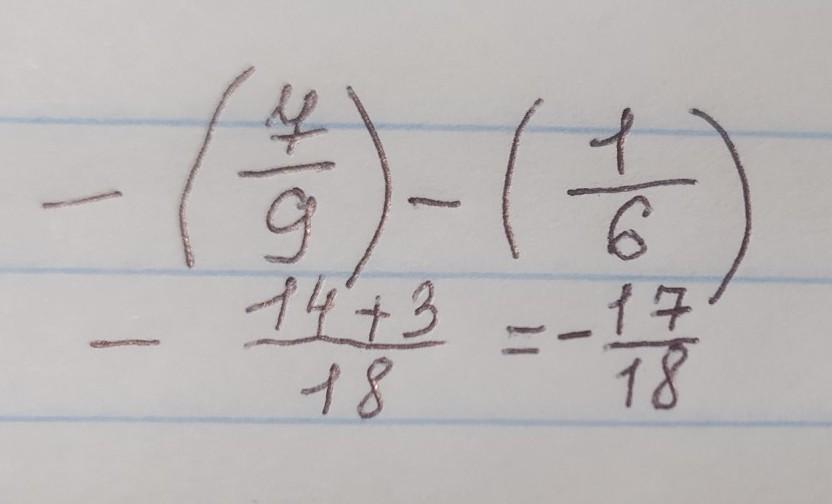 - (7/9) - (1/6)
- 14+3/18 = - 17/18